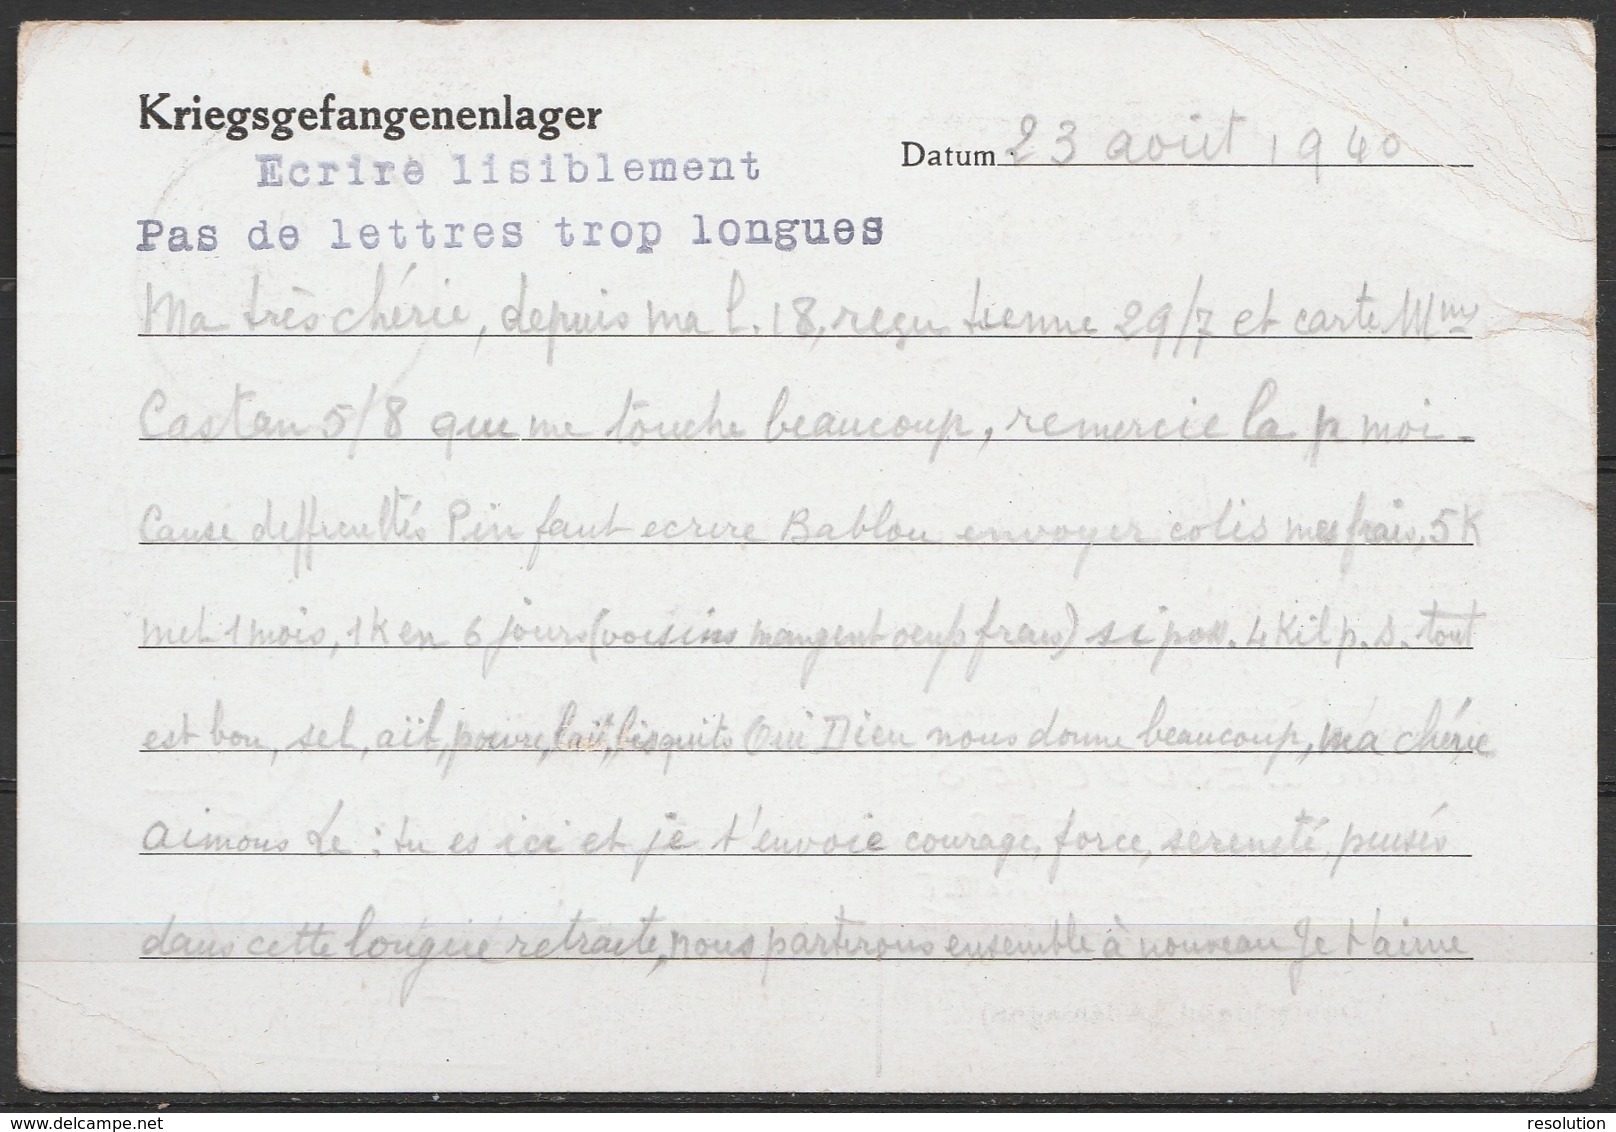 Kriegsgefangenenlager
Datum 23 août 1940
Ecrire lisiblement
Pas de lettres trop longues
Ma très chérie, depuis ma l. 18, reçu tienne 29/7 et carte Mme
Castan 5/8 qui me touche beaucoup, remercie la p moi -
Cause difficultés Pin faut ecrire Bablou envoyer colis mes frais, 5K
met 1 mois, 1K en 6 jours (voisins mangent oeufs frais) si poss. 4 Kil p. s. tout
est bon, sel, aïl, poivre, lait, bisquits Oui Dieu nous donne beaucoup, ma chérie
aimons Le : tu es ici et je t'envoie courage, force, sereneté, pensés
dans cette longue retraite, nous partirons ensemble à nouveau Je t'aime
www.delcampe.net
resolution